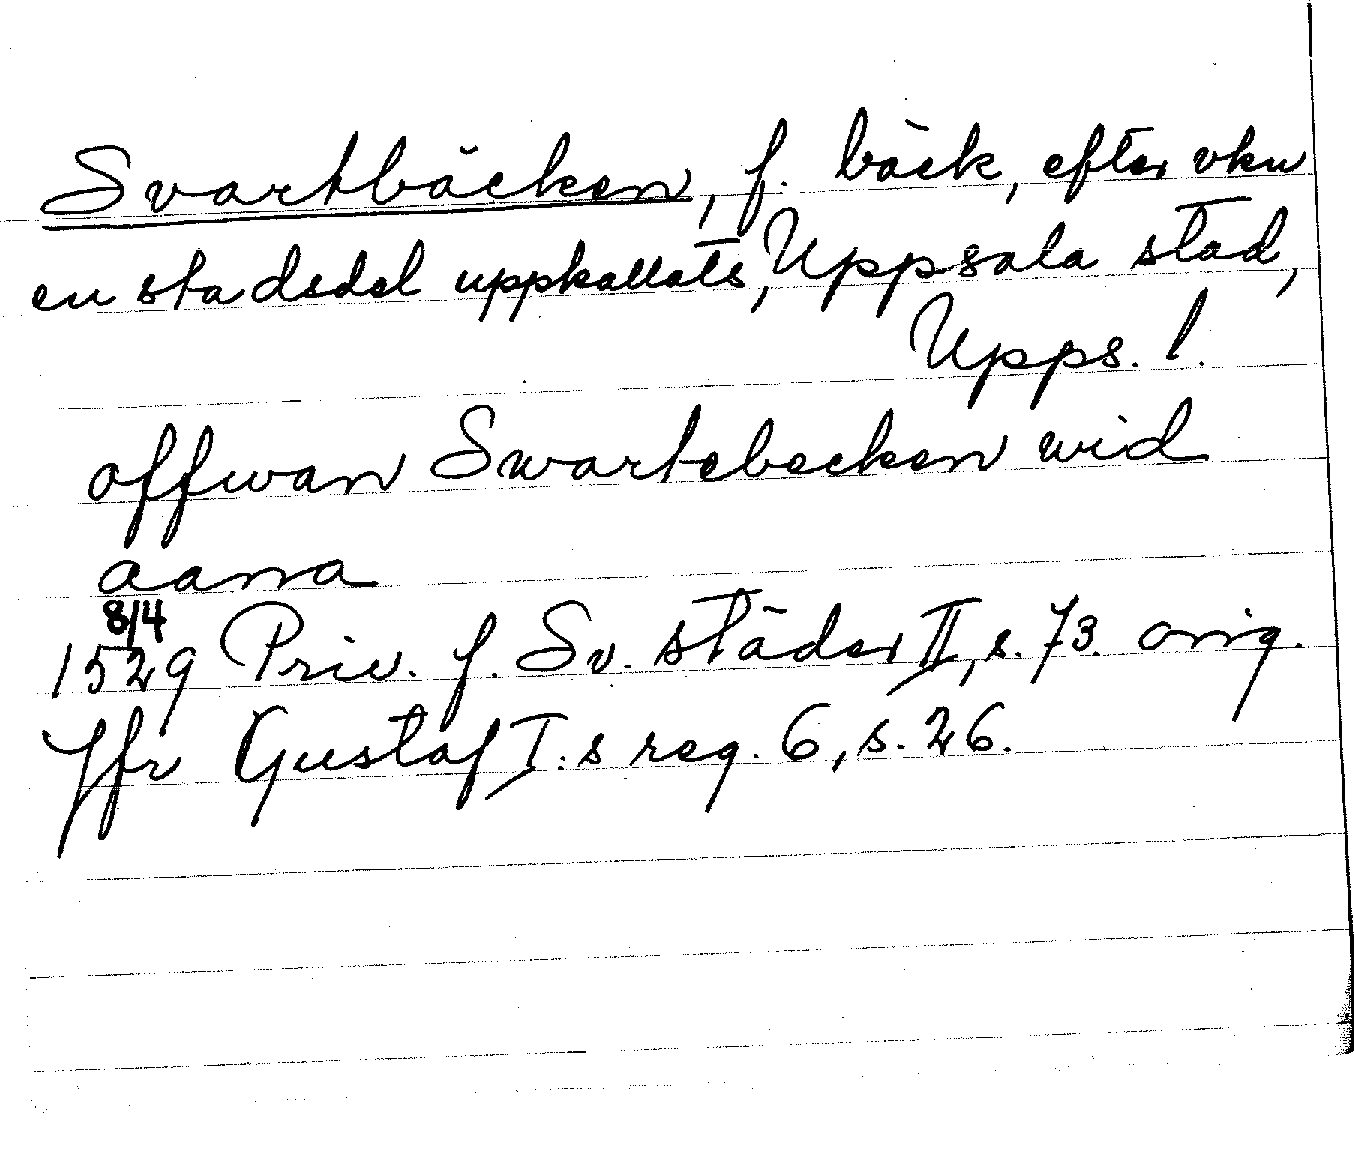 Svartbäcken, f. bäck, efter vken
en stadsdel uppkallats, Uppsala stad,
Upps. l.
offwan Swartebecken wid
aana
8/4
1529 Priv. f. Sv. städer II, s. 73. orig.
Jfr Gustaf I:s reg. 6, s. 26.